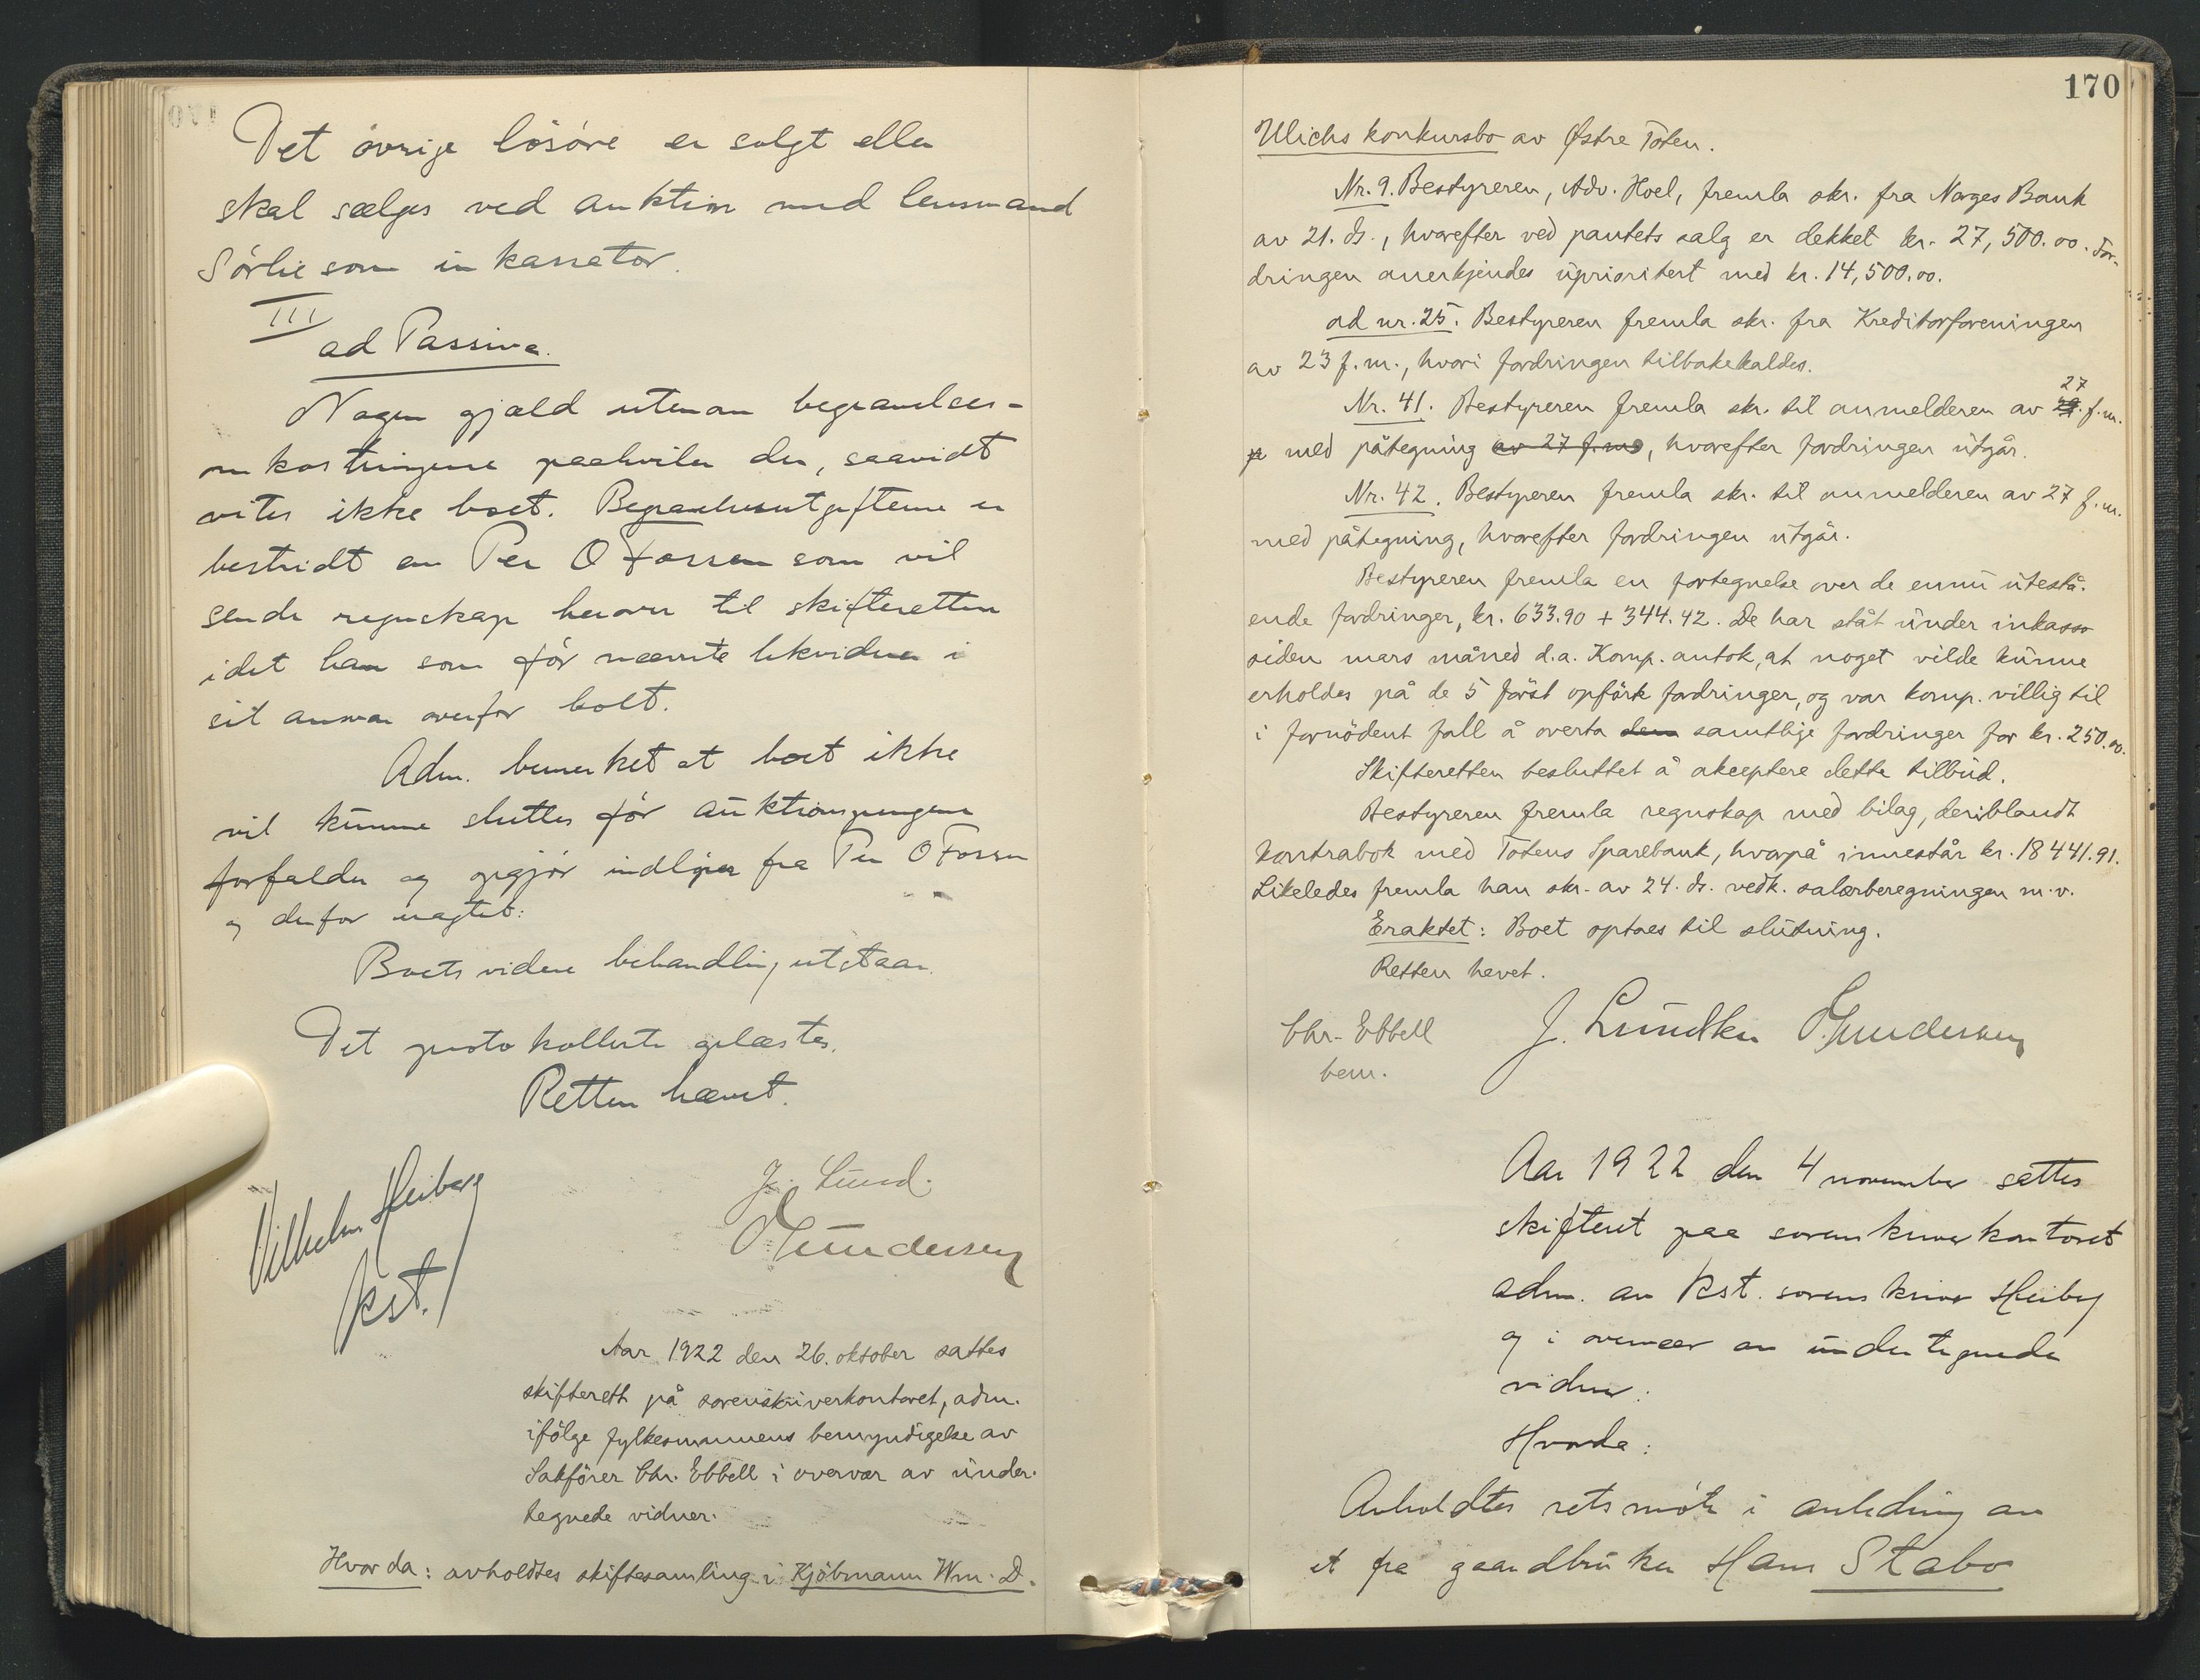 Det övrige lösöre er solgt eller
skal sælges ved auktion med lensmand
Sörlie som inkassator.
III
ad Passiva.
Nogen gjæld utenom begravelses-
omkostningene paahviler der, saavidt
vites ikke boet. Begravelsesutgiftene er
bestridt av Per O Fossen som vil
sende regnskap herover til skifteretten
idet han som før nævnte likvider i
sit ansvar overfor boet.
Adm. bemerket at boet ikke
vil kunne sluttes før auktionspengene
forfalder og opgjør indløper fra Per O Fossen
og derfor
Boets videre behandling utstaar.
Det protokollerte oplæstes.
Retten hævet.
Vilhelm Heiberg
kst.
J. Lund.
O Gundersen
Aar 1922 den 26. oktober sattes
skifterett på sorenskriverkontoret, adm.
ifölge fylkesmannens bemyndigelse av
Sakförer Chr. Ebbell i overvær av under-
tegnede vidner.
Hvorda: avholdtes skiftesamling i Kjöbmann Wm. D.
170
Ulichs konkursbo av Østre Toten.
Nr. 9. Bestyreren, Adv. Hoel, fremla skr. fra Norges Bank
av 21. ds., hvorefter ved pantets salg er dekket kr. 27,500.00. For-
dringen anerkjendes uprioritert med kr. 14,500.00.
ad nr. 25. Bestyreren fremla skr. fra Kreditorforeningen
av 23 f.m., hvori fordringen tilbakekaldes.
27
Nr. 41. Bestyreren fremla skr. til anmelderen av f.m.
med påtegning av 27 f.m., hvorefter fordringen utgår.
Nr. 42. Bestyreren fremla skr. til anmelderen av 27 f.m.
med påtegning, hvorefter fordringen utgår.
Bestyreren fremla en fortegnelse over de ennu utestå-
ende fordringer, kr. 633.90 + 344.42. De har stått under inkasso
siden mars måned d.a. Komp. antok, at noget vilde kunne
erholdes på de 5 först opförte fordringer, og var komp. villig til
i fornödent fall å overta dem samtlige fordringer for kr. 250.00.
Skifteretten besluttet å akceptere dette tilbud.
Bestyreren fremla regnskap med bilag, deriblandt
kontrabok med Totens Sparebank, hvorpå innestår kr. 18441.91.
Likeledes fremla han skr. av 24. ds. vedk. salærberegningen m.v.
Eraktet: Boet optaes til slutning.
Retten hevet.
Chr. Ebbell
bem.
J. Lundken O. Gundersen
Aar 1922 den 4 november sattes
skifteret paa sorenskriverkontoret
adm. av kst. sorenskriver Heiberg
og i overvær av undertegnede
vidner:
Hvorda:
Avholdtes retsmöte i anledning av
et fra gaardbruker Hans Stabo